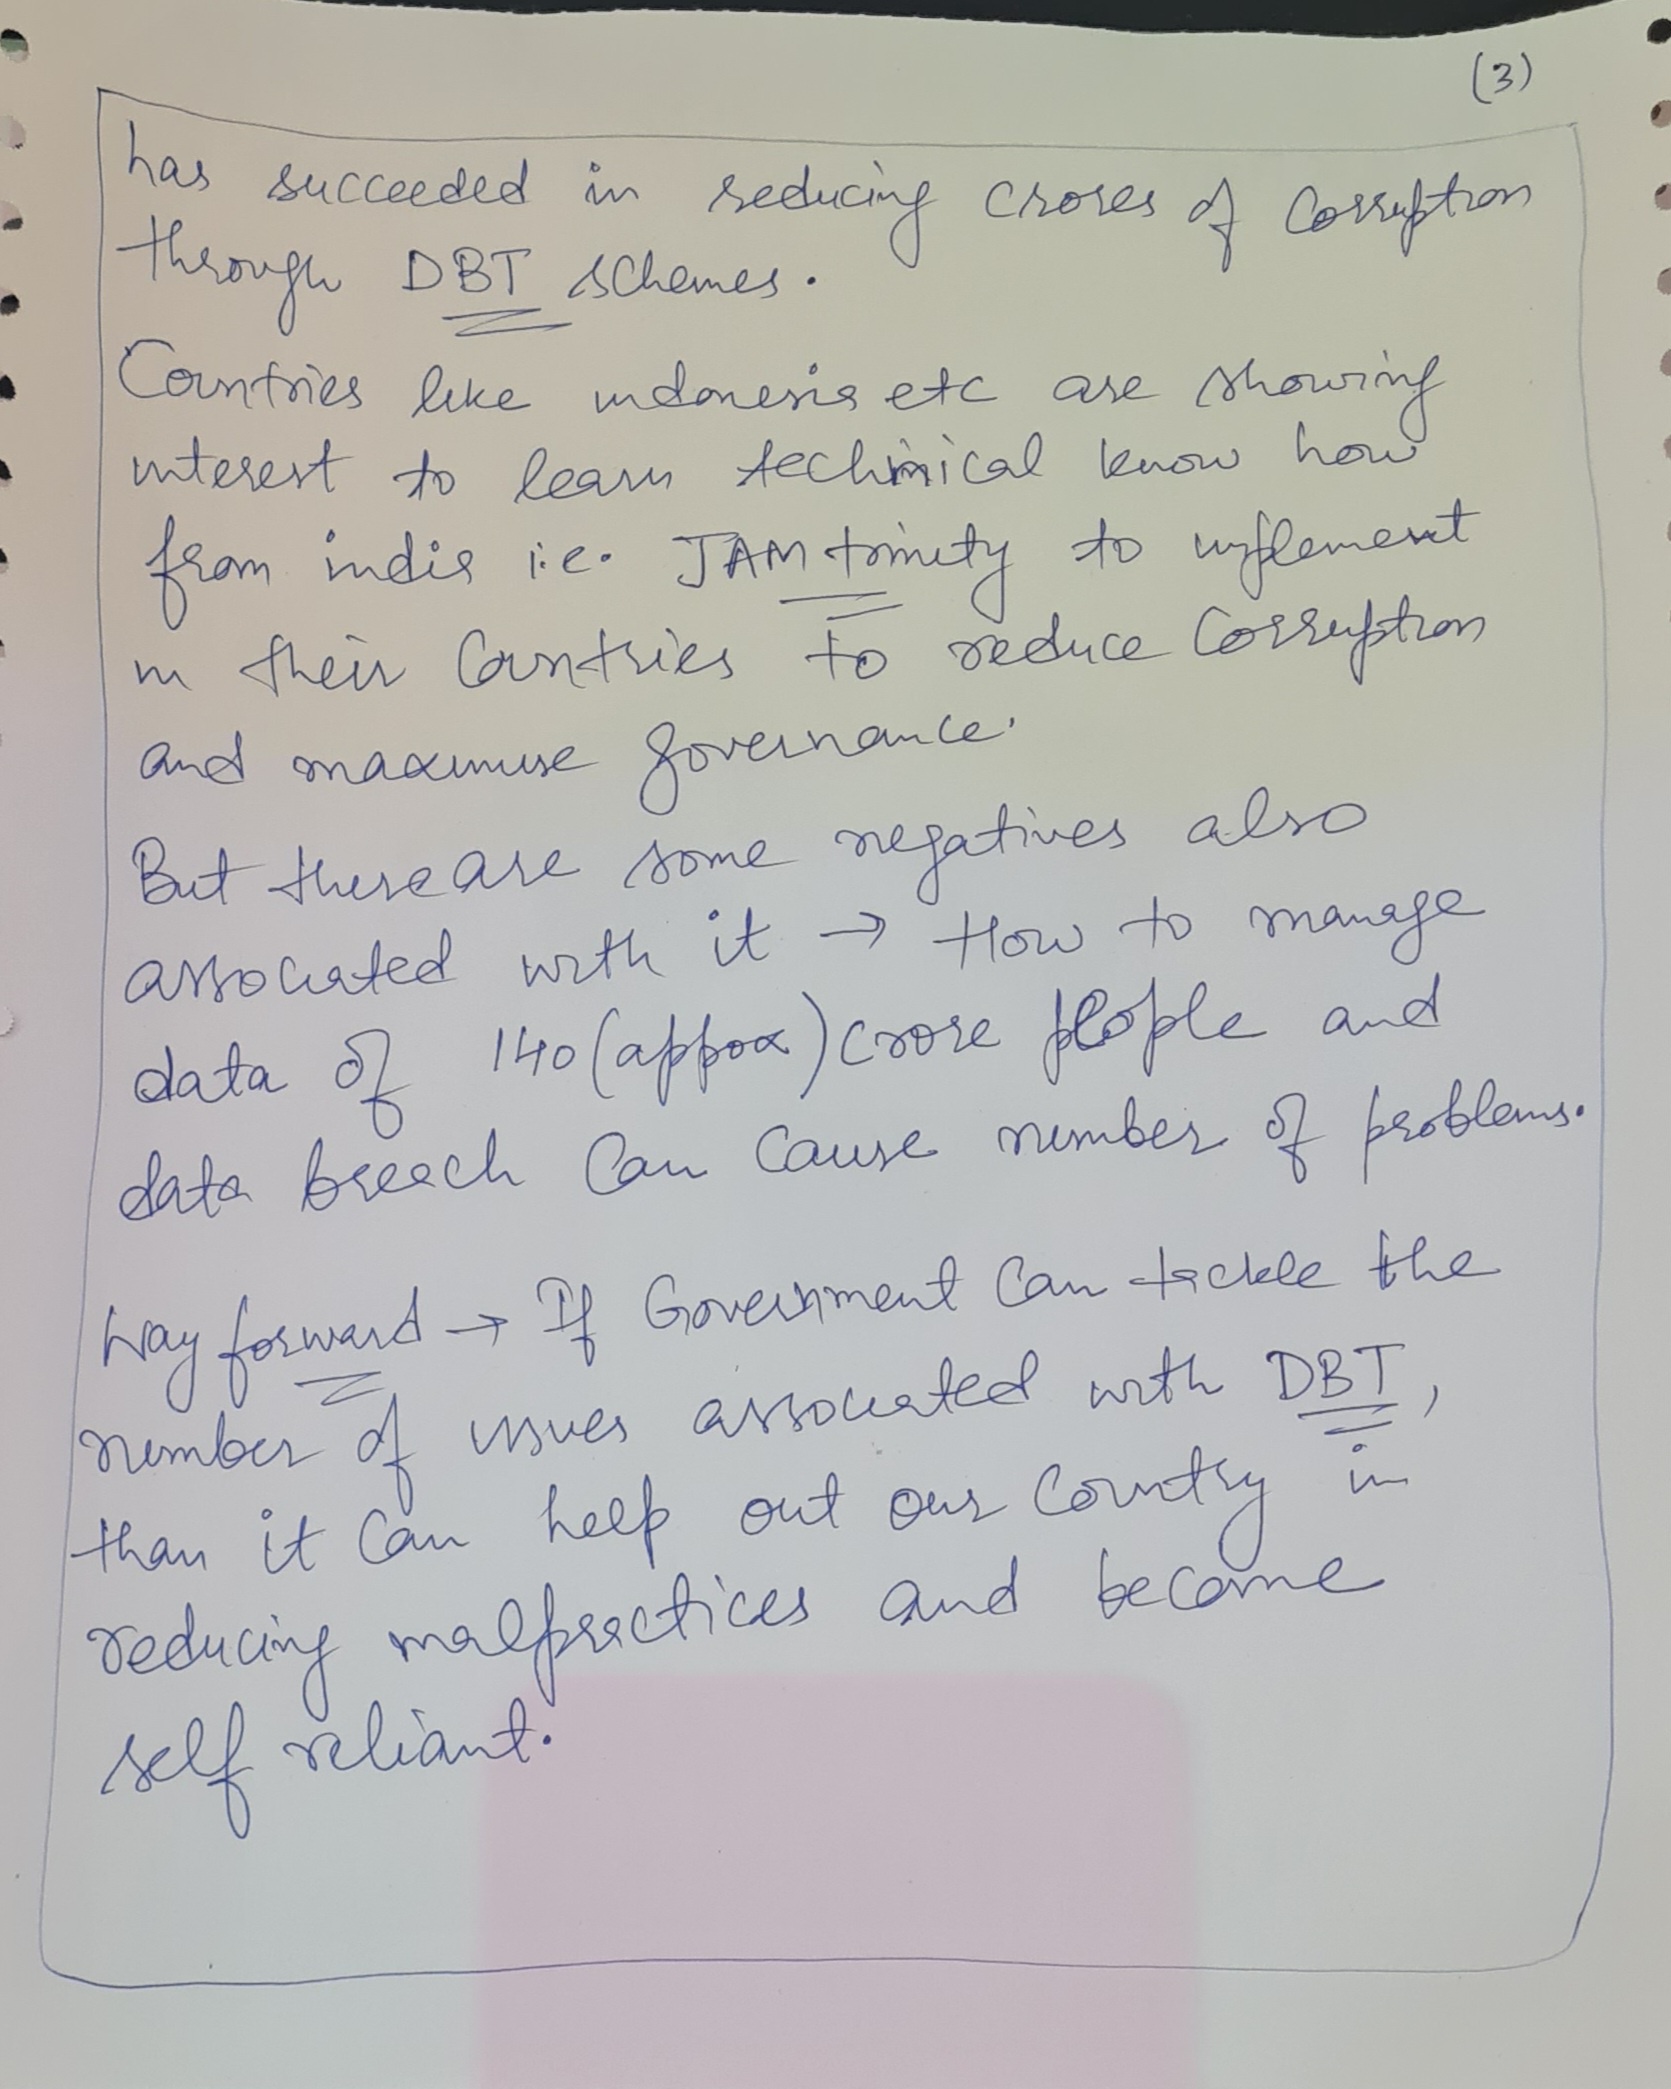 (3)
has succeeded in reducing crores of corruption
through DBT schemes.
Countries like indonesia etc are showing
interest to learn techinical know how
from india i.e. JAM trinity to implement
in their Countries to reduce Corruption
and maximise governance.
But there are some negatives also
associated with it → How to manage
data of 140 (appox) crore people and
data breach can cause number of problems.
Way forward → If Government can tackle the
number of issues associated with DBT,
than it can help out our country in
reducing malpractices and become
self reliant.